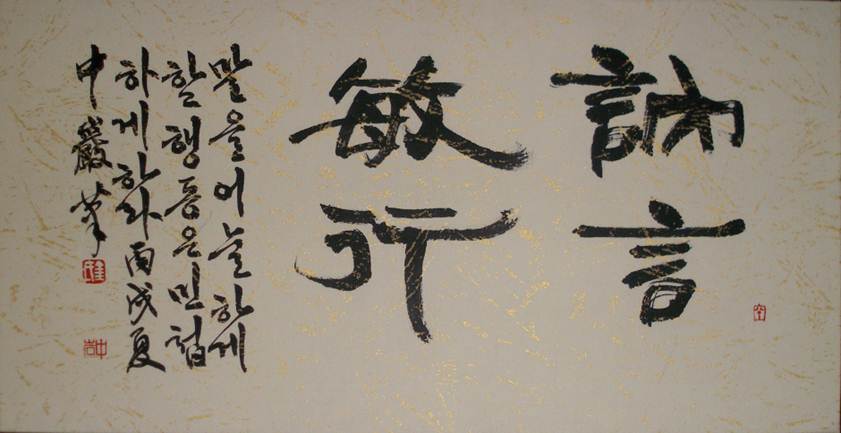 訥言
敏行
말을어눌하게
할행동은민첩
하게하라丙戌夏
中巖筆